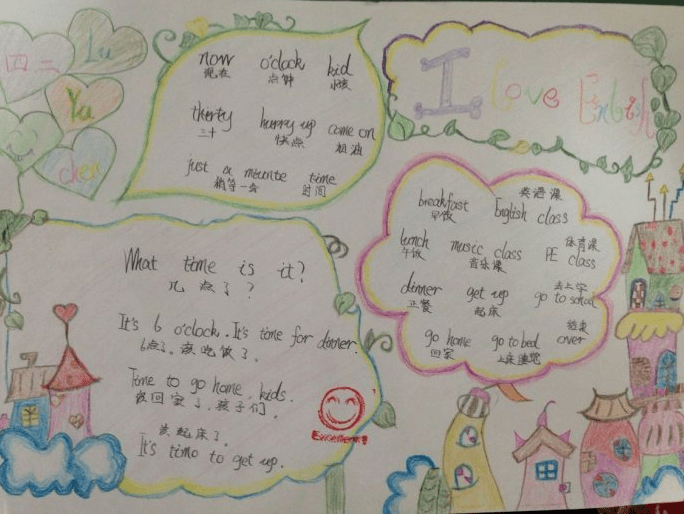 四二
Lu
Yu
chen
now o'clock kid
现在 点钟 小孩
thirty hurry up come on
三十 快点 加油
just a miunte time
稍等一会 时间
I Love English
breakfast English class
早饭 英语课
lunch music class PE class
午饭 音乐课 体育课
dinner get up go to school
正餐 起床 去上学
go home go to bed over
回家 上床睡觉 结束
What time is it?
几点了?
It's 6 o'clock. It's time for dinner.
6点了。该吃饭了。
Time to go home, kids.
该回家了,孩子们。
该起床了。
It's time to get up.